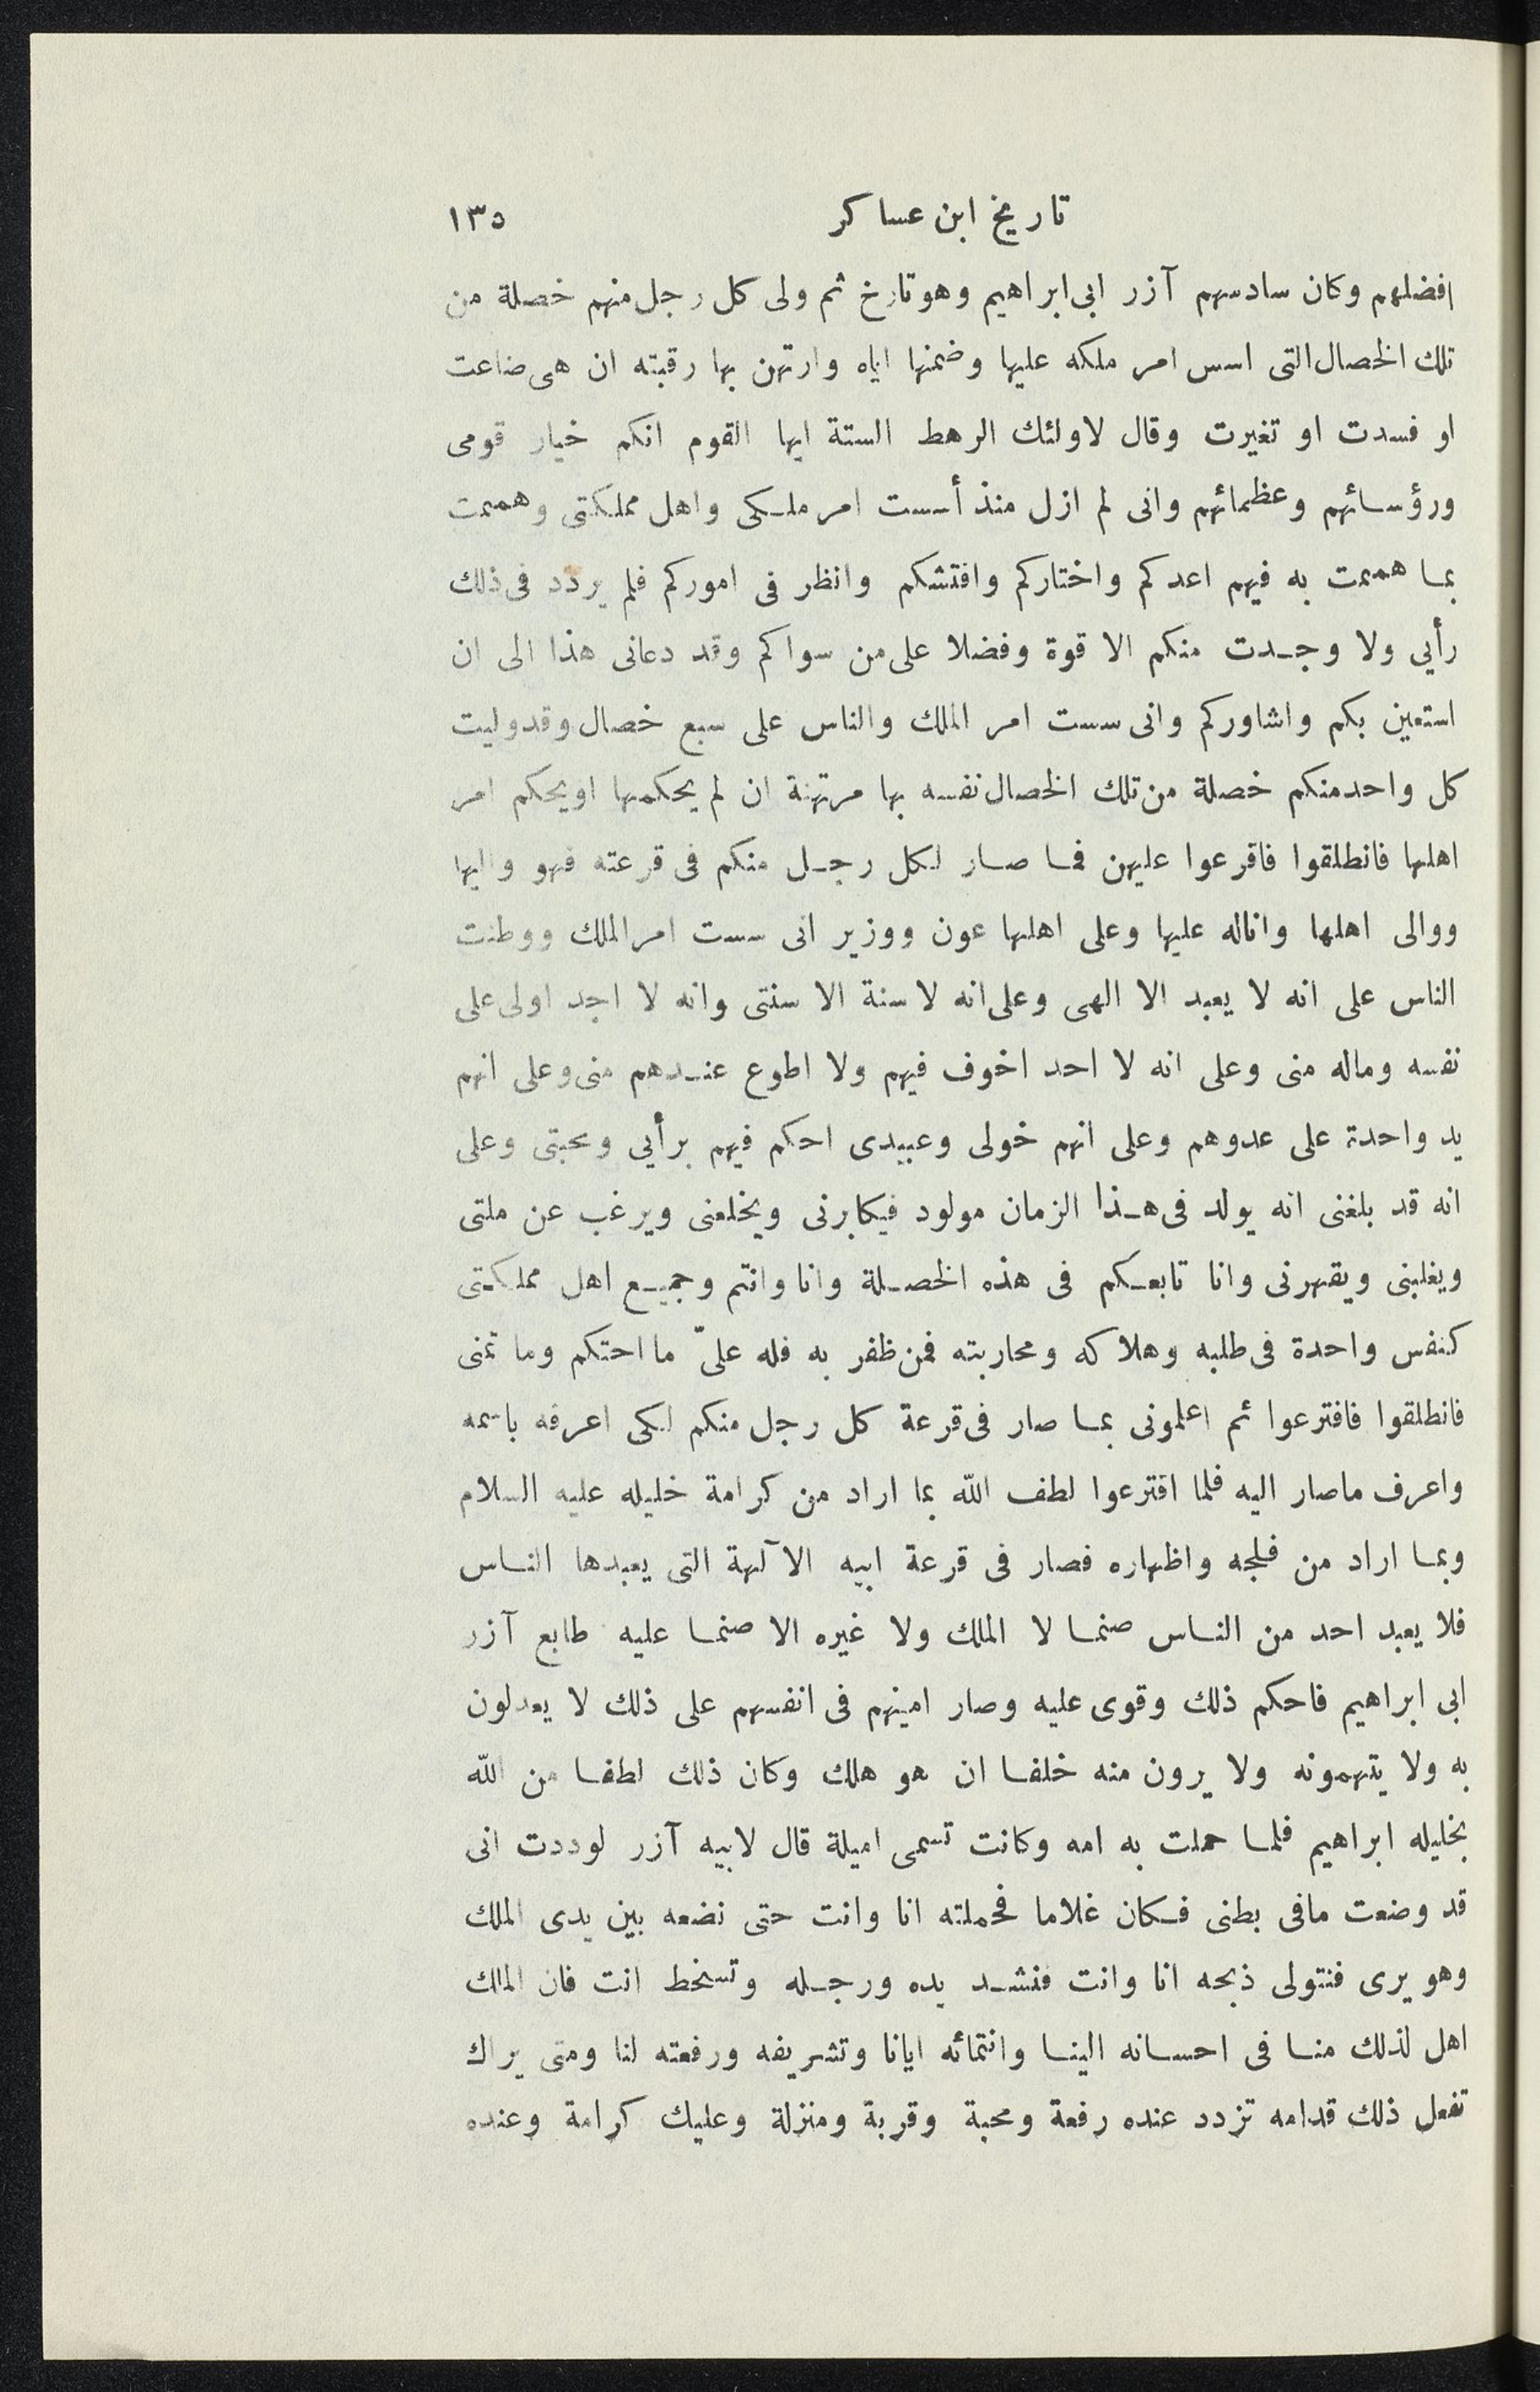 تاريخ ابن عساكر ١٣٥
افضلهم وكان سادسهم آزر ابى ابراهيم وهو تارخ ثم ولى كل رجل منهم خصلة من
تلك الخصال التى اسس امر ملكه عليها وضمنها اياه وارتهن بها رقبته ان هى ضاعت
او فسدت او تغيرت وقال لاولئك الرهط الستة ايها القوم انكم خيار قومى
ورؤسائهم وعظمائهم وانى لم ازل منذ أسست امر ملكى واهل مملكتى وهممت
بما هممت به فيهم اعدكم واختاركم وافتشكم وانظر فى اموركم فلم يردد فى ذلك
رأيي ولا وجدت منكم الا قوة وفضلا على من سواكم وقد دعانى هذا الى ان
استعين بكم واشاوركم وانى سست امر الملك والناس على سبع خصال وقد وليت
كل واحد منكم خصلة من تلك الخصال نفسه بها مرتهنة ان لم يحكمها او يحكم امر
اهلها فانطلقوا فاقرعوا عليهن فما صار لكل رجل منكم فى قرعته فهو واليها
ووالى اهلها واناله عليها وعلى اهلها عون ووزير انى سست امر الملك ووطنت
الناس على انه لا يعبد الا الهى وعلى انه لا سنة الا سنتى وانه لا اجد اولى على
نفسه وماله منى وعلى انه لا احد اخوف فيهم ولا اطوع عندهم منى وعلى انهم
يد واحدة على عدوهم وعلى انهم خولى وعبيدى احكم فيهم برأيي ومحبتى وعلى
انه قد بلغنى انه يولد فى هذا الزمان مولود فيكابرنى ويخلعنى ويرغب عن ملتى
ويغلبنى ويقهرنى وانا تابعكم فى هذه الخصلة وانا وانتم وجميع اهل مملكتى
كنفس واحدة فى طلبه وهلاكه ومحاربته فمن ظفر به فله علىّ ما احتكم وما تمنى
فانطلقوا فاقترعوا ثم اعلمونى بما صار فى قرعة كل رجل منكم لكى اعرفه باسمه
واعرف ماصار اليه فلما اقترعوا لطف الله بما اراد من كرامة خليله عليه السلام
وبما اراد من فلجه واظهاره فصار فى قرعة ابيه الآلهة التى يعبدها الناس
فلا يعبد احد من الناس صنما لا الملك ولا غيره الا صنما عليه طابع آزر
ابى ابراهيم فاحكم ذلك وقوى عليه وصار امينهم فى انفسهم على ذلك لا يعدلون
به ولا يتهمونه ولا يرون منه خلفا ان هو هلك وكان ذلك لطفا من الله
بخليله ابراهيم فلما حملت به امه وكانت تسمى اميلة قال لابيه آزر لوددت انى
قد وضعت مافى بطنى فكان غلاما فحملته انا وانت حتى نضعه بين يدى الملك
وهو يرى فنتولى ذبحه انا وانت فنشد يده ورجله وتسخط انت فان الملك
اهل لذلك منا فى احسانه الينا وانتمائه ايانا وتشريفه ورفعته لنا ومتى يراك
تفعل ذلك قدامه تزدد عنده رفعة ومحبة وقربة ومنزلة وعليك كرامة وعنده